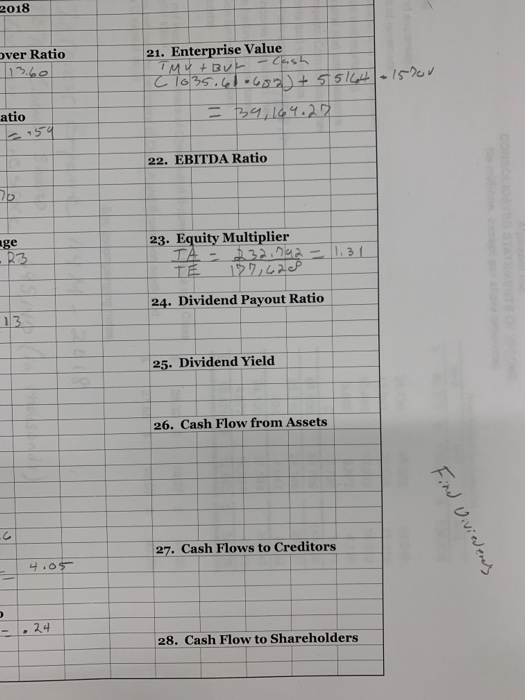 2018
over Ratio
13.60
atio
= .54
70
age
.23
13
.6
= 4.05
= .24
21. Enterprise Value
TMV + BVL - Cash
(1035.61 · .682) + 55164 - 15701
= 39,164.27
22. EBITDA Ratio
23. Equity Multiplier
TA = 232,792 = 1.31
TE 177,628
24. Dividend Payout Ratio
25. Dividend Yield
26. Cash Flow from Assets
27. Cash Flows to Creditors
28. Cash Flow to Shareholders
Find Dividends